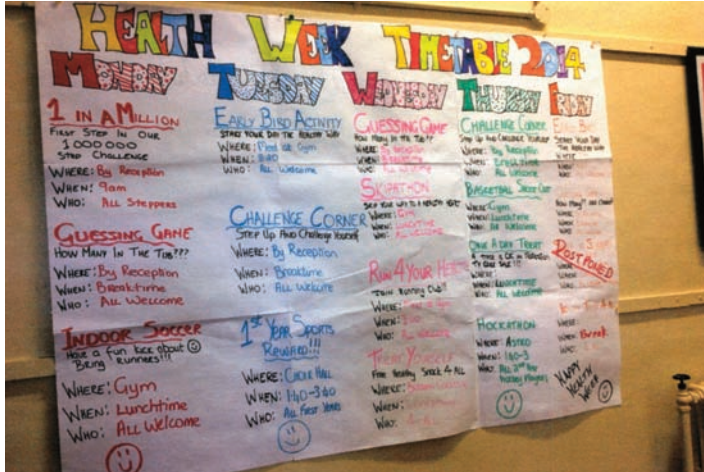 HEALTH WEEK TIMETABLE 2014
MONDAY
1 IN A MILLION
FIRST STEP IN OUR
1000000
STEP CHALLENGE
WHERE: By Reception
WHEN: 9am
WHO: ALL Steppers
GUESSING GAME
HOW MANY IN THE TUB???
WHERE: By Reception
WHEN: Breaktime
WHO: ALL Welcome
INDOOR SOCCER
Have a fun kick about
Bring Runners!!!
WHERE: Gym
WHEN: Lunchtime
WHO: ALL Welcome
TUESDAY
EARLY BIRD ACTIVITY
START YOUR DAY THE HEALTHY WAY
WHERE: Meet at Gym
WHEN: 8:40
WHO: ALL Welcome
CHALLENGE CORNER
STEP UP AND CHALLENGE YOURSELF
WHERE: By Reception
WHEN: Breaktime
WHO: ALL Welcome
1ST YEAR SPORTS
REWARD!!!
WHERE: CHOIR HALL
WHEN: 1:40-3:40
WHO: ALL First Years
WEDNESDAY
GUESSING GAME
HOW MANY IN THE TUB??
WHERE: By Reception
WHEN: Breaktime
WHO: ALL Welcome
SKIPATHON
SKIP YOUR WAY TO A HEALTHY HEART
WHERE: GYM
WHEN: LUNCHTIME
WHO: ALL WELCOME
RUN 4 YOUR HEALTH
JOIN Running Club!!
WHERE:
WHEN:
WHO: ALL Welcome
TREAT YOURSELF
Free Healthy Snack 4 ALL
WHERE:
WHEN:
WHO: 4 ALL
THURSDAY
CHALLENGE CORNER
STEP UP AND CHALLENGE YOURSELF
WHERE: By Reception
WHEN: Breaktime
WHO: ALL Welcome
BASKETBALL SHOOT OUT
WHERE: Gym
WHEN: Lunchtime
WHO: All Welcome
ONE A DAY TREAT
WHERE:
WHEN: LUNCHTIME
WHO: ALL Welcome
HOCKATHON
WHERE: ASTRO
WHEN: 1:40-3
WHO: All 2nd Yr
Hockey Players
FRIDAY
EARLY BIRD
START YOUR DAY
THE HEALTHY WAY
WHERE
WHEN
WHO
POSTPONED
WHERE:
WHEN: Break
WHO:
HAPPY
HEALTH
WEEK